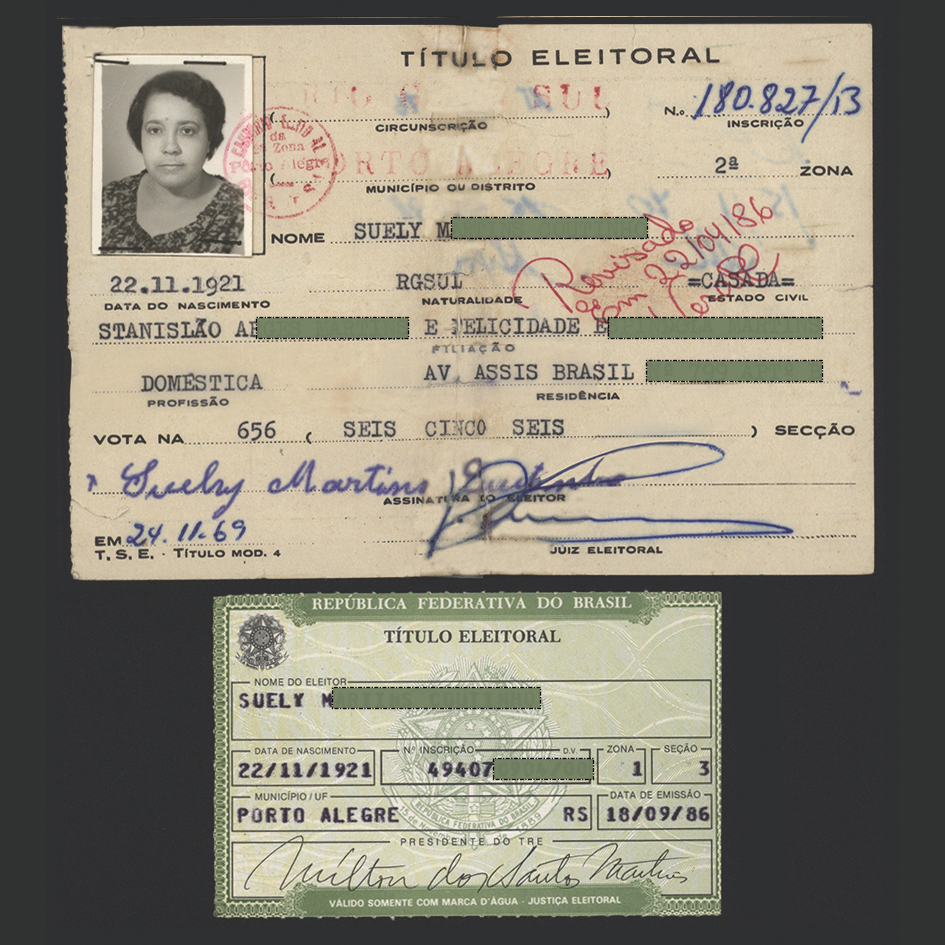 TÍTULO ELEITORAL
RIO G SUL
CIRCUNSCRIÇÃO
N.o 180.827/13
INSCRIÇÃO
da
Zona
Pôrto Alegre
PORTO ALEGRE
MUNICÍPIO OU DISTRITO
2ª ZONA
NOME SUELY M
Revisado
em 22/04/86
22.11.1921
DATA DO NASCIMENTO
RGSUL
NATURALIDADE
=CASADA=
ESTADO CIVIL
STANISLÃO A E FELICIDADE
FILIAÇÃO
DOMÉSTICA
PROFISSÃO
AV. ASSIS BRASIL
RESIDÊNCIA
VOTA NA 656 ( SEIS CINCO SEIS ) SECÇÃO
Suely Martins
ASSINATURA DO ELEITOR
EM 24.11.69
T. S. E. - TÍTULO MOD. 4
JUIZ ELEITORAL
REPÚBLICA FEDERATIVA DO BRASIL
TÍTULO ELEITORAL
NOME DO ELEITOR
SUELY M
DATA DE NASCIMENTO
22/11/1921
N.º INSCRIÇÃO D.V.
49407
ZONA
1
SEÇÃO
3
MUNICÍPIO / UF
PORTO ALEGRE RS
DATA DE EMISSÃO
18/09/86
PRESIDENTE DO TRE
Milton dos Santos Martins
VÁLIDO SOMENTE COM MARCA D'ÁGUA - JUSTIÇA ELEITORAL